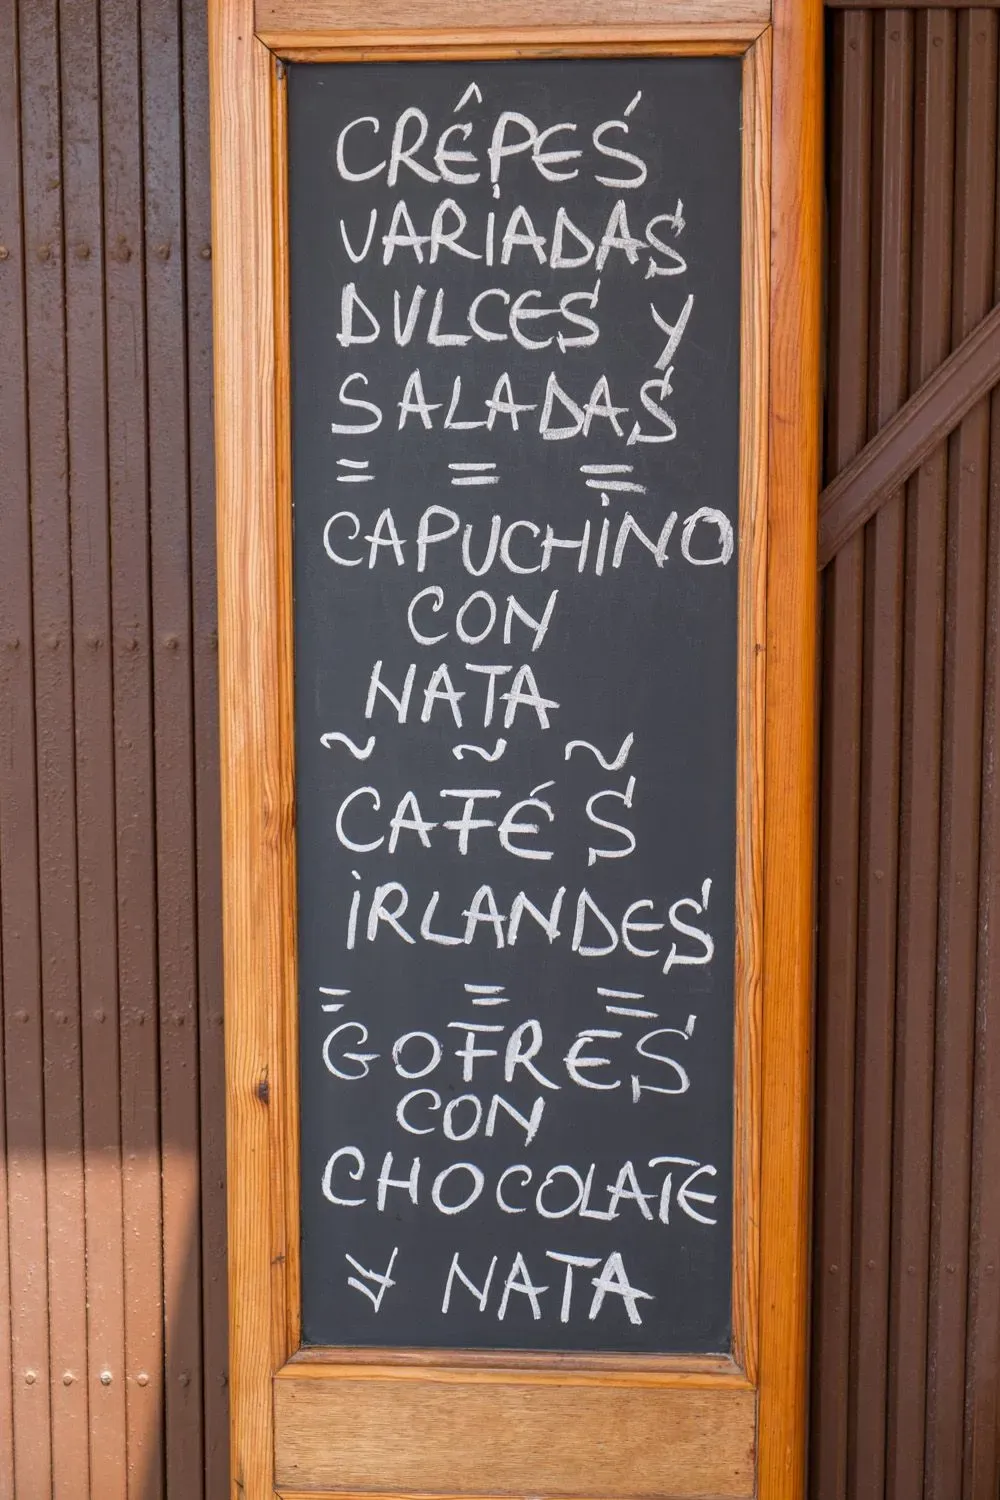 CRÊPES
VARIADAS
DULCES Y
SALADAS
= = =
CAPUCHINO
CON
NATA
~ ~ ~
CAFÉS
IRLANDES
= = =
GOFRES
CON
CHOCOLATE
Y NATA